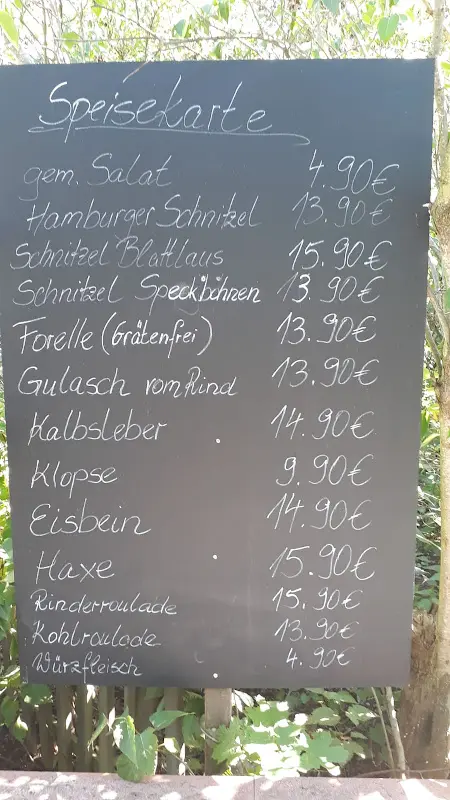 Speisekarte
gem. Salat 4.90€
Hamburger Schnitzel 13.90€
Schnitzel Blattlaus 15.90€
Schnitzel Speckbohnen 13.90€
Forelle (Grätenfrei) 13.90€
Gulasch vom Rind 13.90€
Kalbsleber 14.90€
Klopse 9.90€
Eisbein 14.90€
Haxe 15.90€
Rinderroulade 15.90€
Kohlroulade 13.90€
Würzfleisch 4.90€